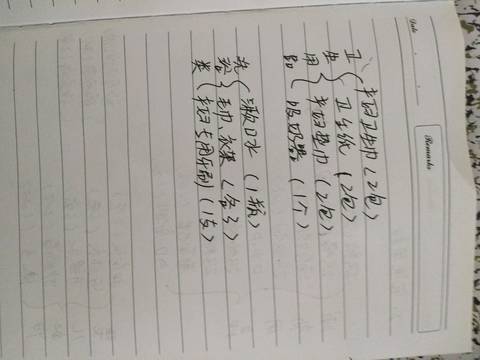 Date . .
Remarks
卫生用品
产妇卫生巾(2包)
卫生纸(2包)
产妇垫巾(2包)
吸奶器(1个)
洗浴类
漱口水(1瓶)
毛巾、衣架(各3)
产妇专用牙刷(1支)